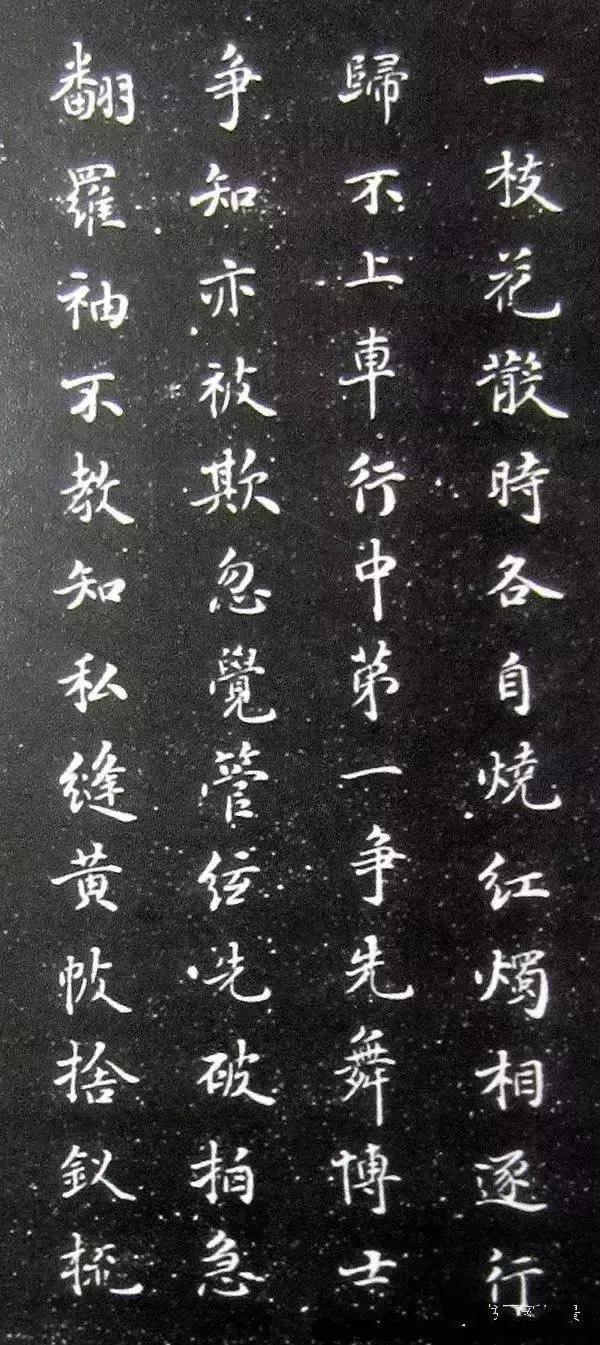 一枝花散時各自燒紅燭相逐行
歸不上車行中第一争先舞博士
争知亦被欺忽覺管絃先破拍急
翻羅袖不教知私縫黄帔捨釵梳